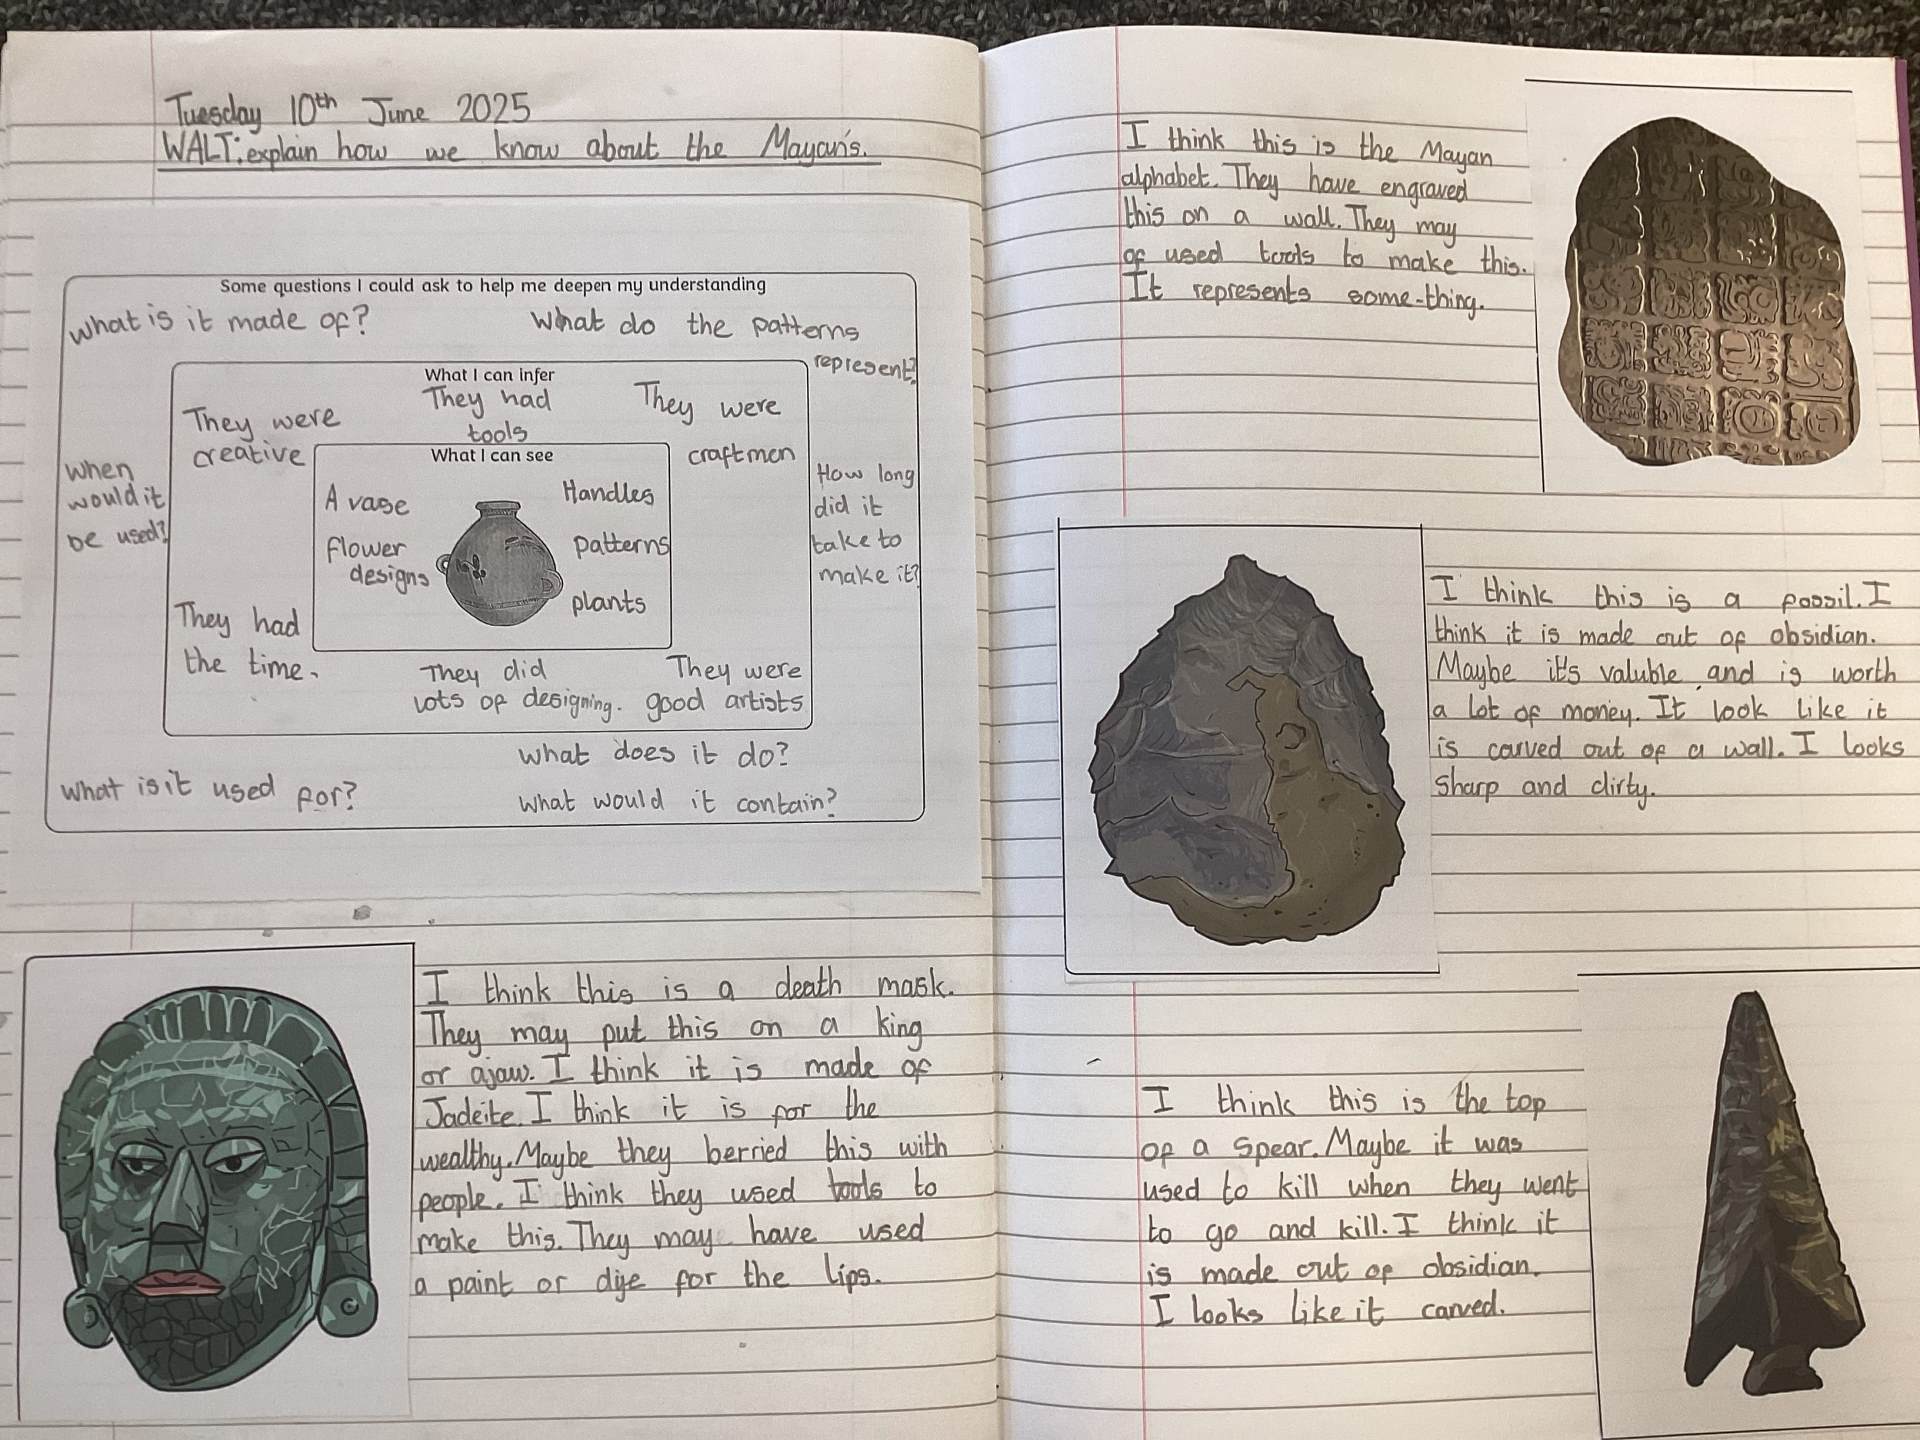 Tuesday 10th June 2025
WALT: explain how we know about the Mayan's.
Some questions I could ask to help me deepen my understanding
What is it made of?
What do the patterns
represent?
When
would it
be used?
How long
did it
take to
make it?
What is it used for?
What does it do?
What would it contain?
What I can infer
They were
creative
They had
tools
They were
craftmen
They had
the time.
They did
lots of designing.
They were
good artists
What I can see
A vase
flower
designs
Handles
patterns
plants
I think this is a death mask.
They may put this on a king
or ajaw. I think it is made of
Jadeite. I think it is for the
wealthy. Maybe they berried this with
people. I think they used tools to
make this. They may have used
a paint or dye for the lips.
I think this is the Mayan
alphabet. They have engraved
this on a wall. They may
of used tools to make this.
It represents some-thing.
I think this is a fossil. I
think it is made out of obsidian.
Maybe it's valuble and is worth
a lot of money. It look like it
is carved out of a wall. I looks
sharp and dirty.
I think this is the top
of a spear. Maybe it was
used to kill when they went
to go and kill. I think it
is made out of obsidian.
I looks like it carved.